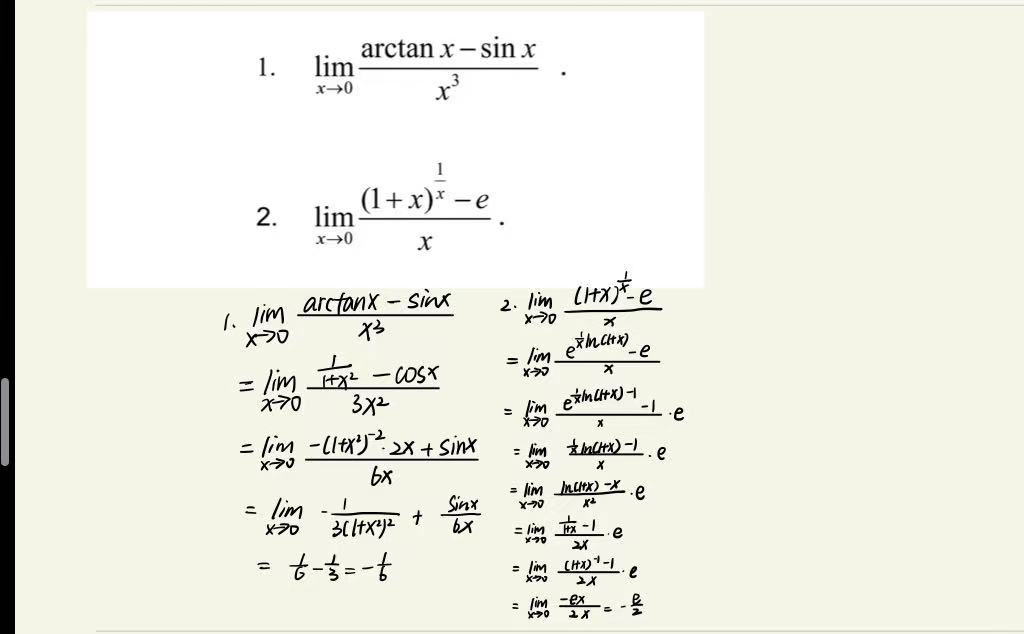 1. lim_{x→0} (arctan x − sin x)/x³ .
2. lim_{x→0} ((1+x)^{1/x} − e)/x .
1. lim_{x→0} (arctanx − sinx)/x³
= lim_{x→0} (1/(1+x²) − cosx)/(3x²)
= lim_{x→0} (−(1+x²)^{−2}·2x + sinx)/(6x)
= lim_{x→0} −1/(3(1+x²)²) + sinx/(6x)
= 1/6 − 1/3 = −1/6
2. lim_{x→0} ((1+x)^{1/x} − e)/x
= lim_{x→0} (e^{1/x ln(1+x)} − e)/x
= lim_{x→0} (e^{1/x ln(1+x) −1} − 1)/x · e
= lim_{x→0} (1/x ln(1+x) − 1)/x · e
= lim_{x→0} (ln(1+x) − x)/x² · e
= lim_{x→0} (1/(1+x) − 1)/(2x) · e
= lim_{x→0} ((1+x)^{−1} − 1)/(2x) · e
= lim_{x→0} (−ex)/(2x) = −e/2